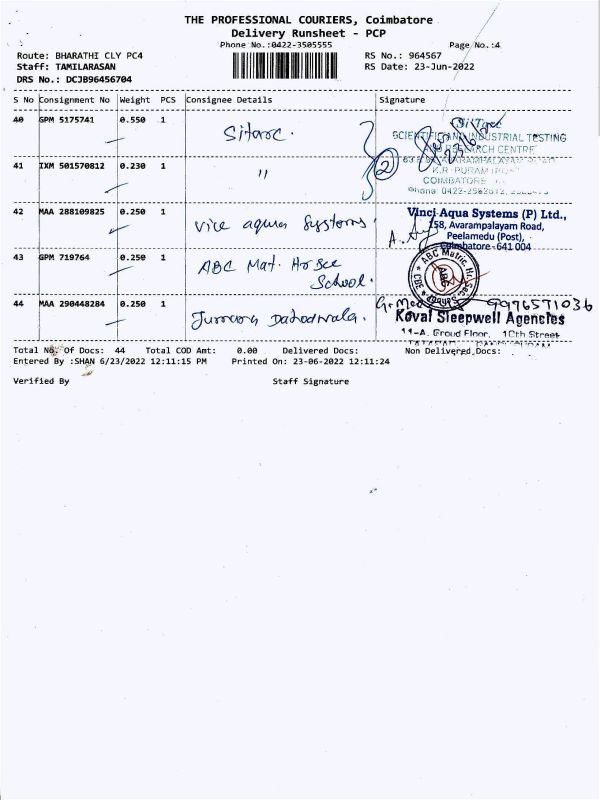 THE PROFESSIONAL COURIERS, Coimbatore
Delivery Runsheet - PCP
Phone No.:0422-3505555
Page No.:4
Route: BHARATHI CLY PC4
RS No.: 964567
Staff: TAMILARASAN
RS Date: 23-Jun-2022
DRS No.: DCJB96456704
S No Consignment No Weight PCS Consignee Details Signature
40 GPM 5175741 0.550 1 Sitarc.
SCIENTIFIC AND INDUSTRIAL TESTING
RESEARCH CENTRE
41 IXM 501570812 0.230 1 "
2
K.R. PURAM
COIMBATORE
Phone 0422-2562612,
42 MAA 288109825 0.250 1 vice aqua Systems
Vinci Aqua Systems (P) Ltd.,
158, Avarampalayam Road,
Peelamedu (Post),
Coimbatore - 641 004
43 GPM 719764 0.250 1 ABC Mat. Hr Sec
School.
ABC Matric Hr. Sec. School CBE
ABC
44 MAA 290448284 0.250 1
9996571036
Koval Sleepwell Agencies
11-A, Groud Floor, 10th Street
Total No. Of Docs: 44 Total COD Amt: 0.00 Delivered Docs: Non Delivered Docs:
Entered By :SHAN 6/23/2022 12:11:15 PM Printed On: 23-06-2022 12:11:24
Verified By Staff Signature